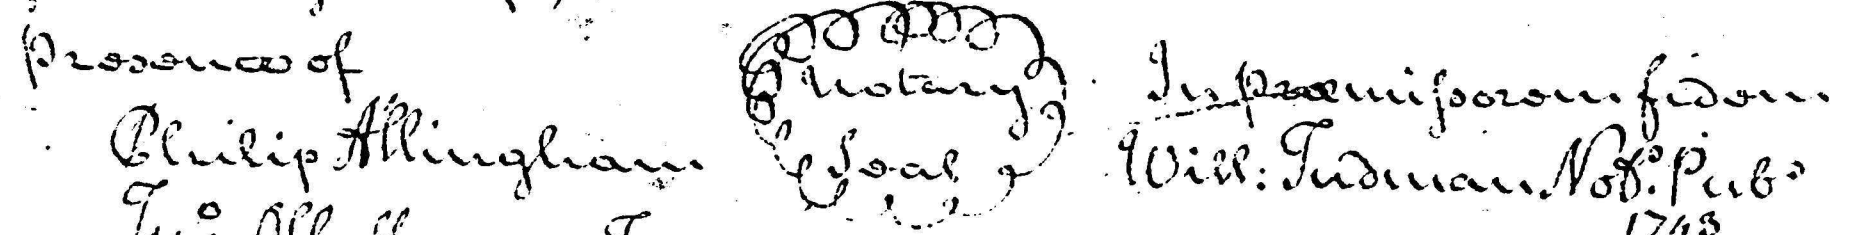 presence of
Philip Allingham
Notary
Seal
In præmissorum fidem
Will: Tudman Not. Pub.
1743